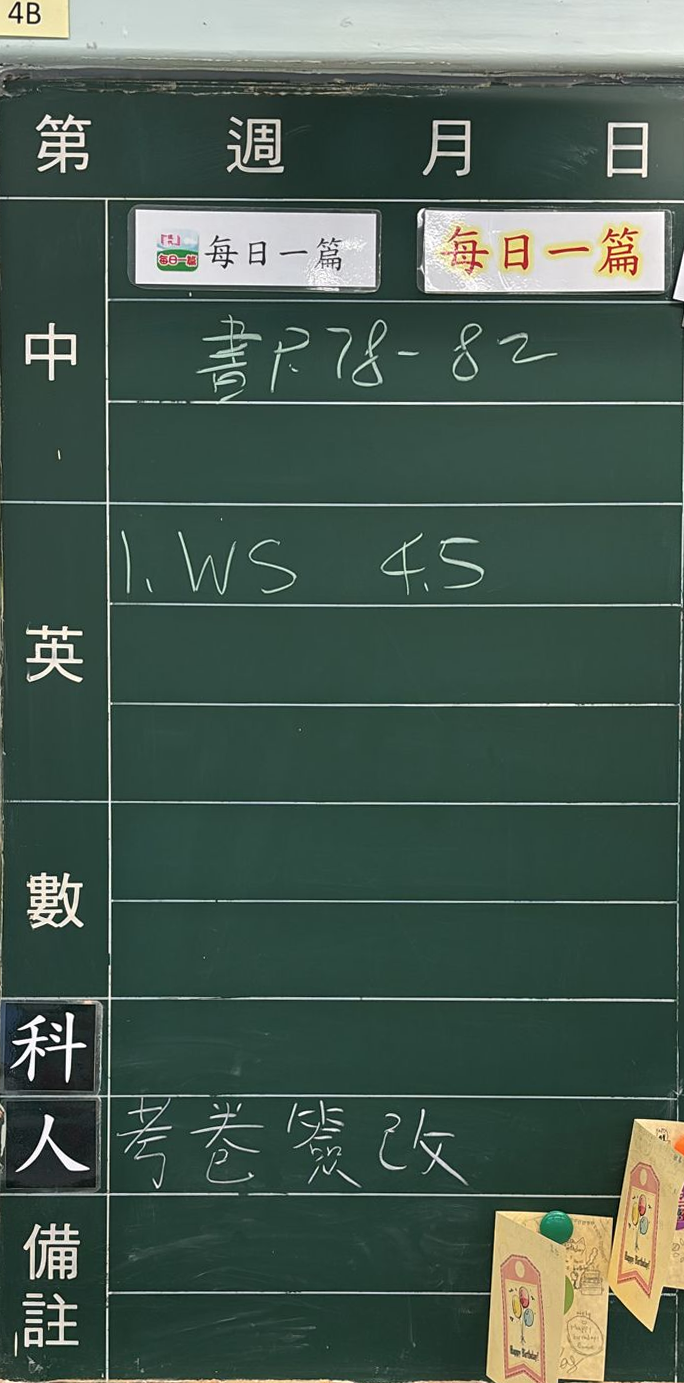 4B
第 週 月 日
每日一篇 每日一篇 每日一篇
中
書P.78-82
英
1. WS 4.5
數
科
人 考卷簽改
備註
Happy Birthday!
Happy Birthday!